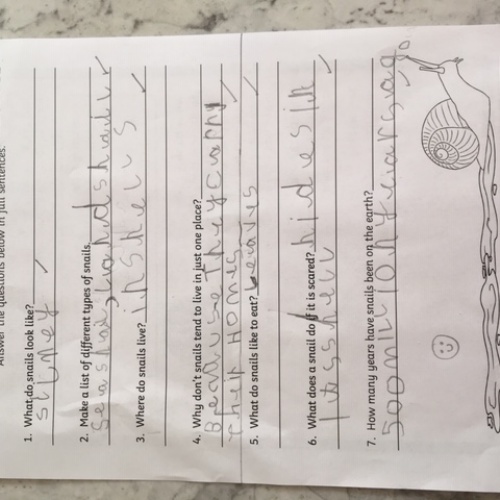 Answer the questions below in full sentences.
1. What do snails look like?
slimey
2. Make a list of different types of snails.
3. Where do snails live? in shells
4. Why don't snails tend to live in just one place?
Because They carry
Their Homes
5. What do snails like to eat? leaves
6. What does a snail do if it is scared? hides in
its shell
7. How many years have snails been on the earth?
500 million years ago